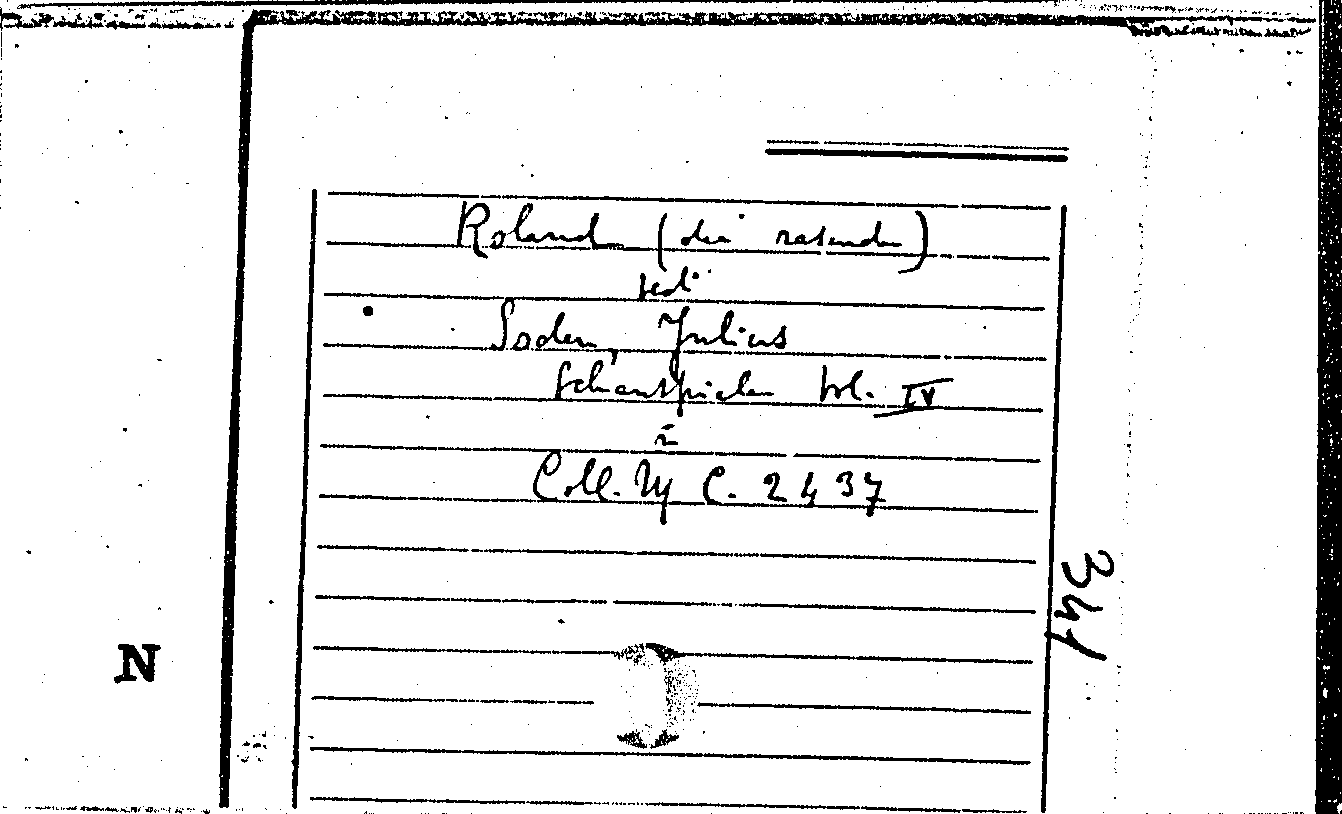 Roland (die rasende)
Soden, Julius
Schauspielen vol. IV
Coll. M C. 2437
341
N